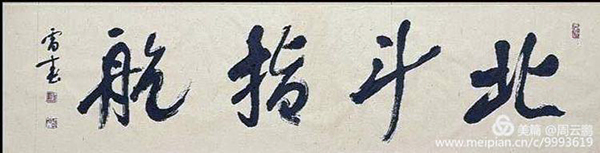 北斗指航
美篇 @周云鹏
www.meipian.cn/c/9993619